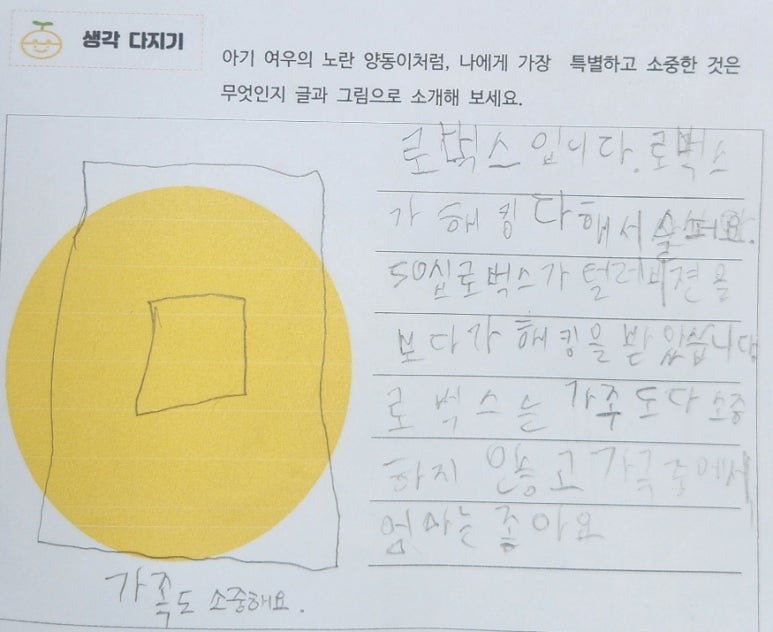 생각 다지기
아기 여우의 노란 양동이처럼, 나에게 가장 특별하고 소중한 것은
무엇인지 글과 그림으로 소개해 보세요.
로벅스입니다. 로벅스
가 해킹 다해서 슬퍼요.
50십로벅스가 털레비젼을
보다가 해킹을 받았습니다
로벅스는 가족도다 소중
하지 안흥고 가족중에서
엄마는 좋아요
가족도 소중해요.